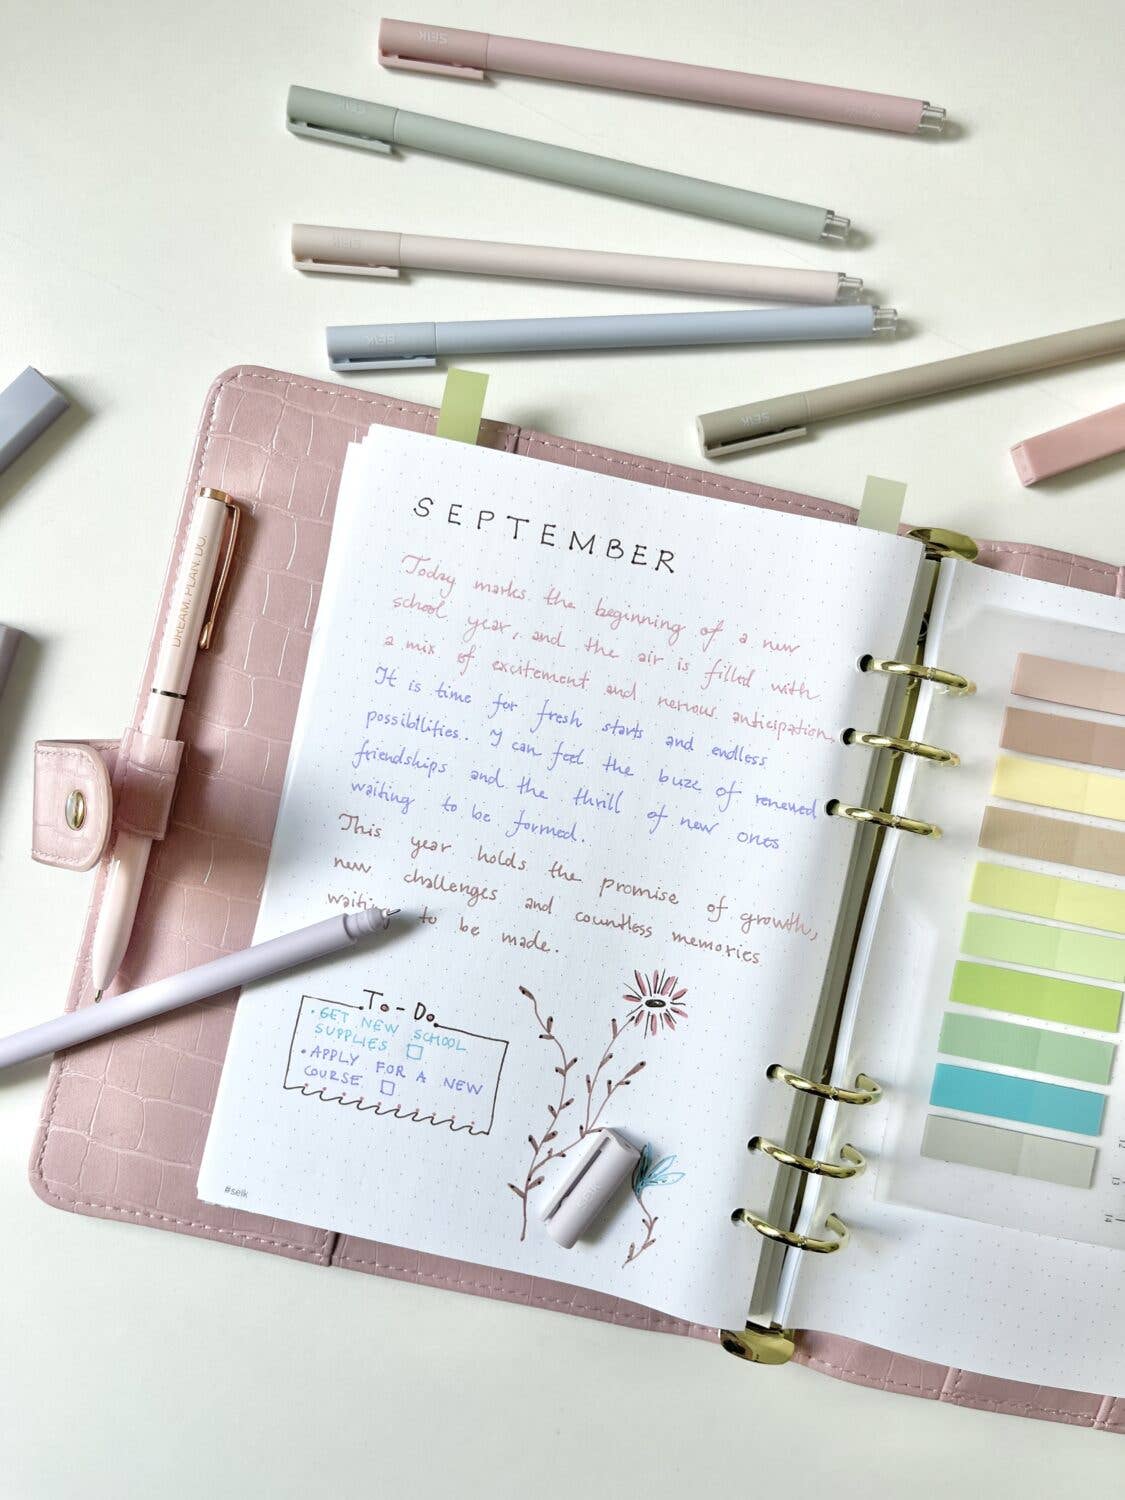 seik
seik
seik
seik
seik
DREAM. PLAN. DO.
SEPTEMBER
Today marks the beginning of a new
school year, and the air is filled with
a mix of excitement and nervous anticipation.
It is time for fresh starts and endless
possibilities. I can feel the buzz of renewed
friendships and the thrill of new ones
waiting to be formed.
This year holds the promise of growth,
new challenges and countless memories
waiting to be made.
To-Do
• GET NEW SCHOOL
SUPPLIES
• APPLY FOR A NEW
COURSE
#seik
seik
12
13
14